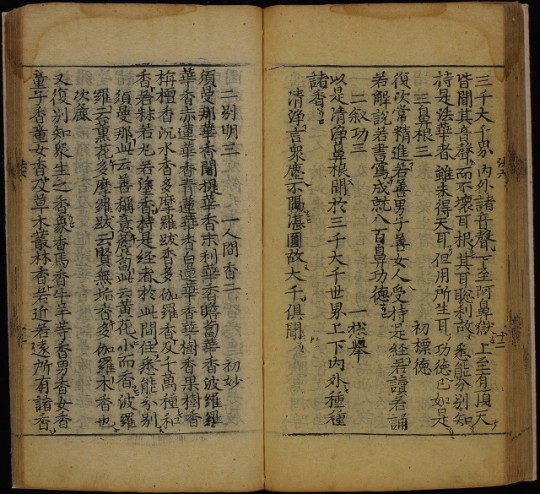 三千大千界內外諸音聲下至阿鼻獄上至有頂天
皆聞其音聲而不壞耳根其耳聰利故悉能分別知
持是法華者雖未得天耳但用所生耳功德已如是
三鼻根三 初標德
復次常精進若善男子善女人受持是經若讀若誦
若解說若書寫成就八百鼻功德
二敘功三 一總舉
以是清淨鼻根聞於三千大千世界上下內外種種
諸香
清淨言衆塵不隔湛圓故大千俱聞
二別明三 一人間香二 初妙
須曼那華香闍提華香末利華香瞻蔔華香波羅羅
華香赤蓮華香青蓮華香白蓮華香華樹香果樹香
栴檀香沉水香多摩羅跋香多伽羅香及千萬種和
香若秣若丸若塗香持是經者於此間住悉能分別
須曼那此云善稱意瞻蔔此云黃花小而香波羅
羅云薰花多摩羅跋云賢無垢香多伽羅木香也
次麤
又復別知衆生之香象香馬香牛羊香男香女香
童子香童女香及草木叢林香若近若遠所有諸香